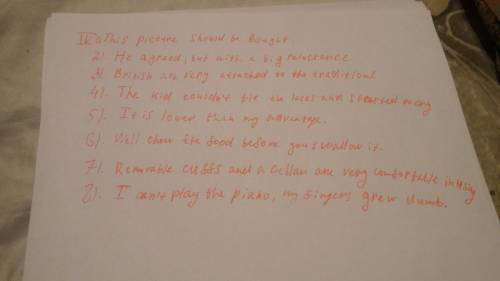 IV a This picture should be bought
2). He agreed, but with a big reluctance
3) British are very attached to the traditions
4). The kid couldn't tie the laces and started to cry
5). It is lower than my average.
6). Well chew the food before you swallow it.
7). Removable cuffs and a collar are very comfortable in using
8). I can't play the piano, my fingers grew dumb.